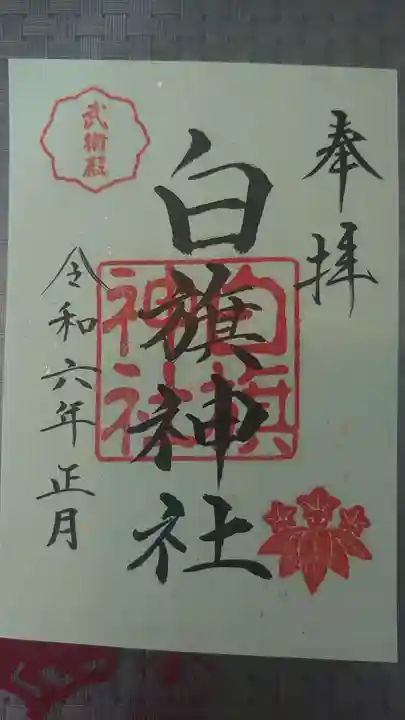 奉拝
白旗神社
令和六年正月
武衛殿
白旗
神社